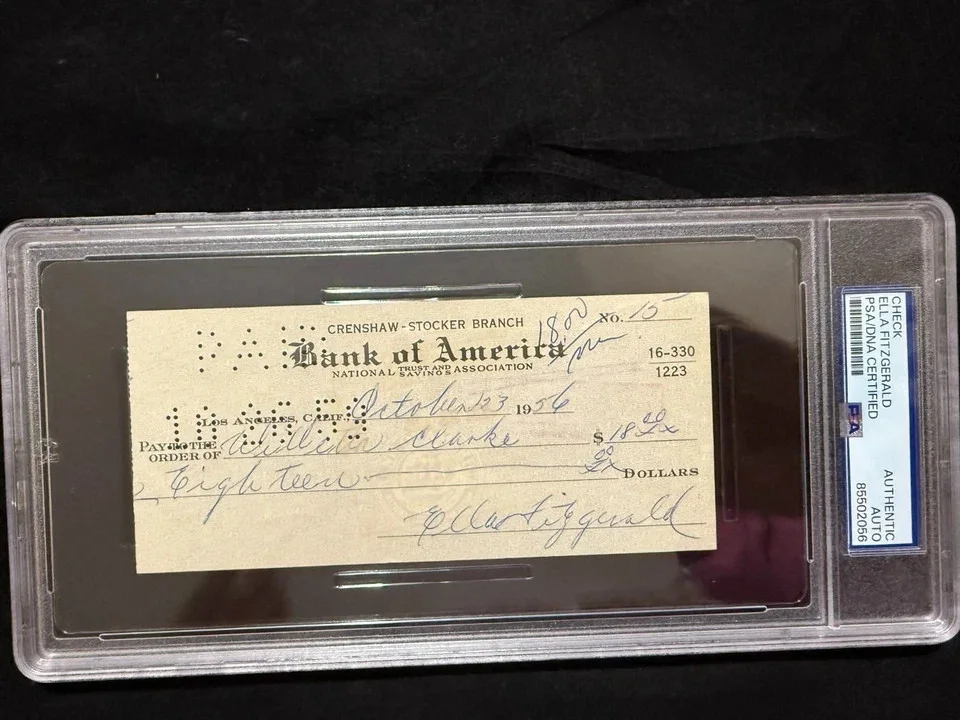 PAID
CRENSHAW-STOCKER BRANCH
18.00
No. 15
Bank of America
NATIONAL TRUST AND SAVINGS ASSOCIATION
16-330
1223
LOS ANGELES, CALIF. October 23 1956
PAY TO THE
ORDER OF William Clarke $ 18 00/xx
Eighteen 00/xx DOLLARS
Ella Fitzgerald
CHECK
ELLA FITZGERALD
PSA/DNA CERTIFIED
PSA
AUTHENTIC
AUTO
85502056